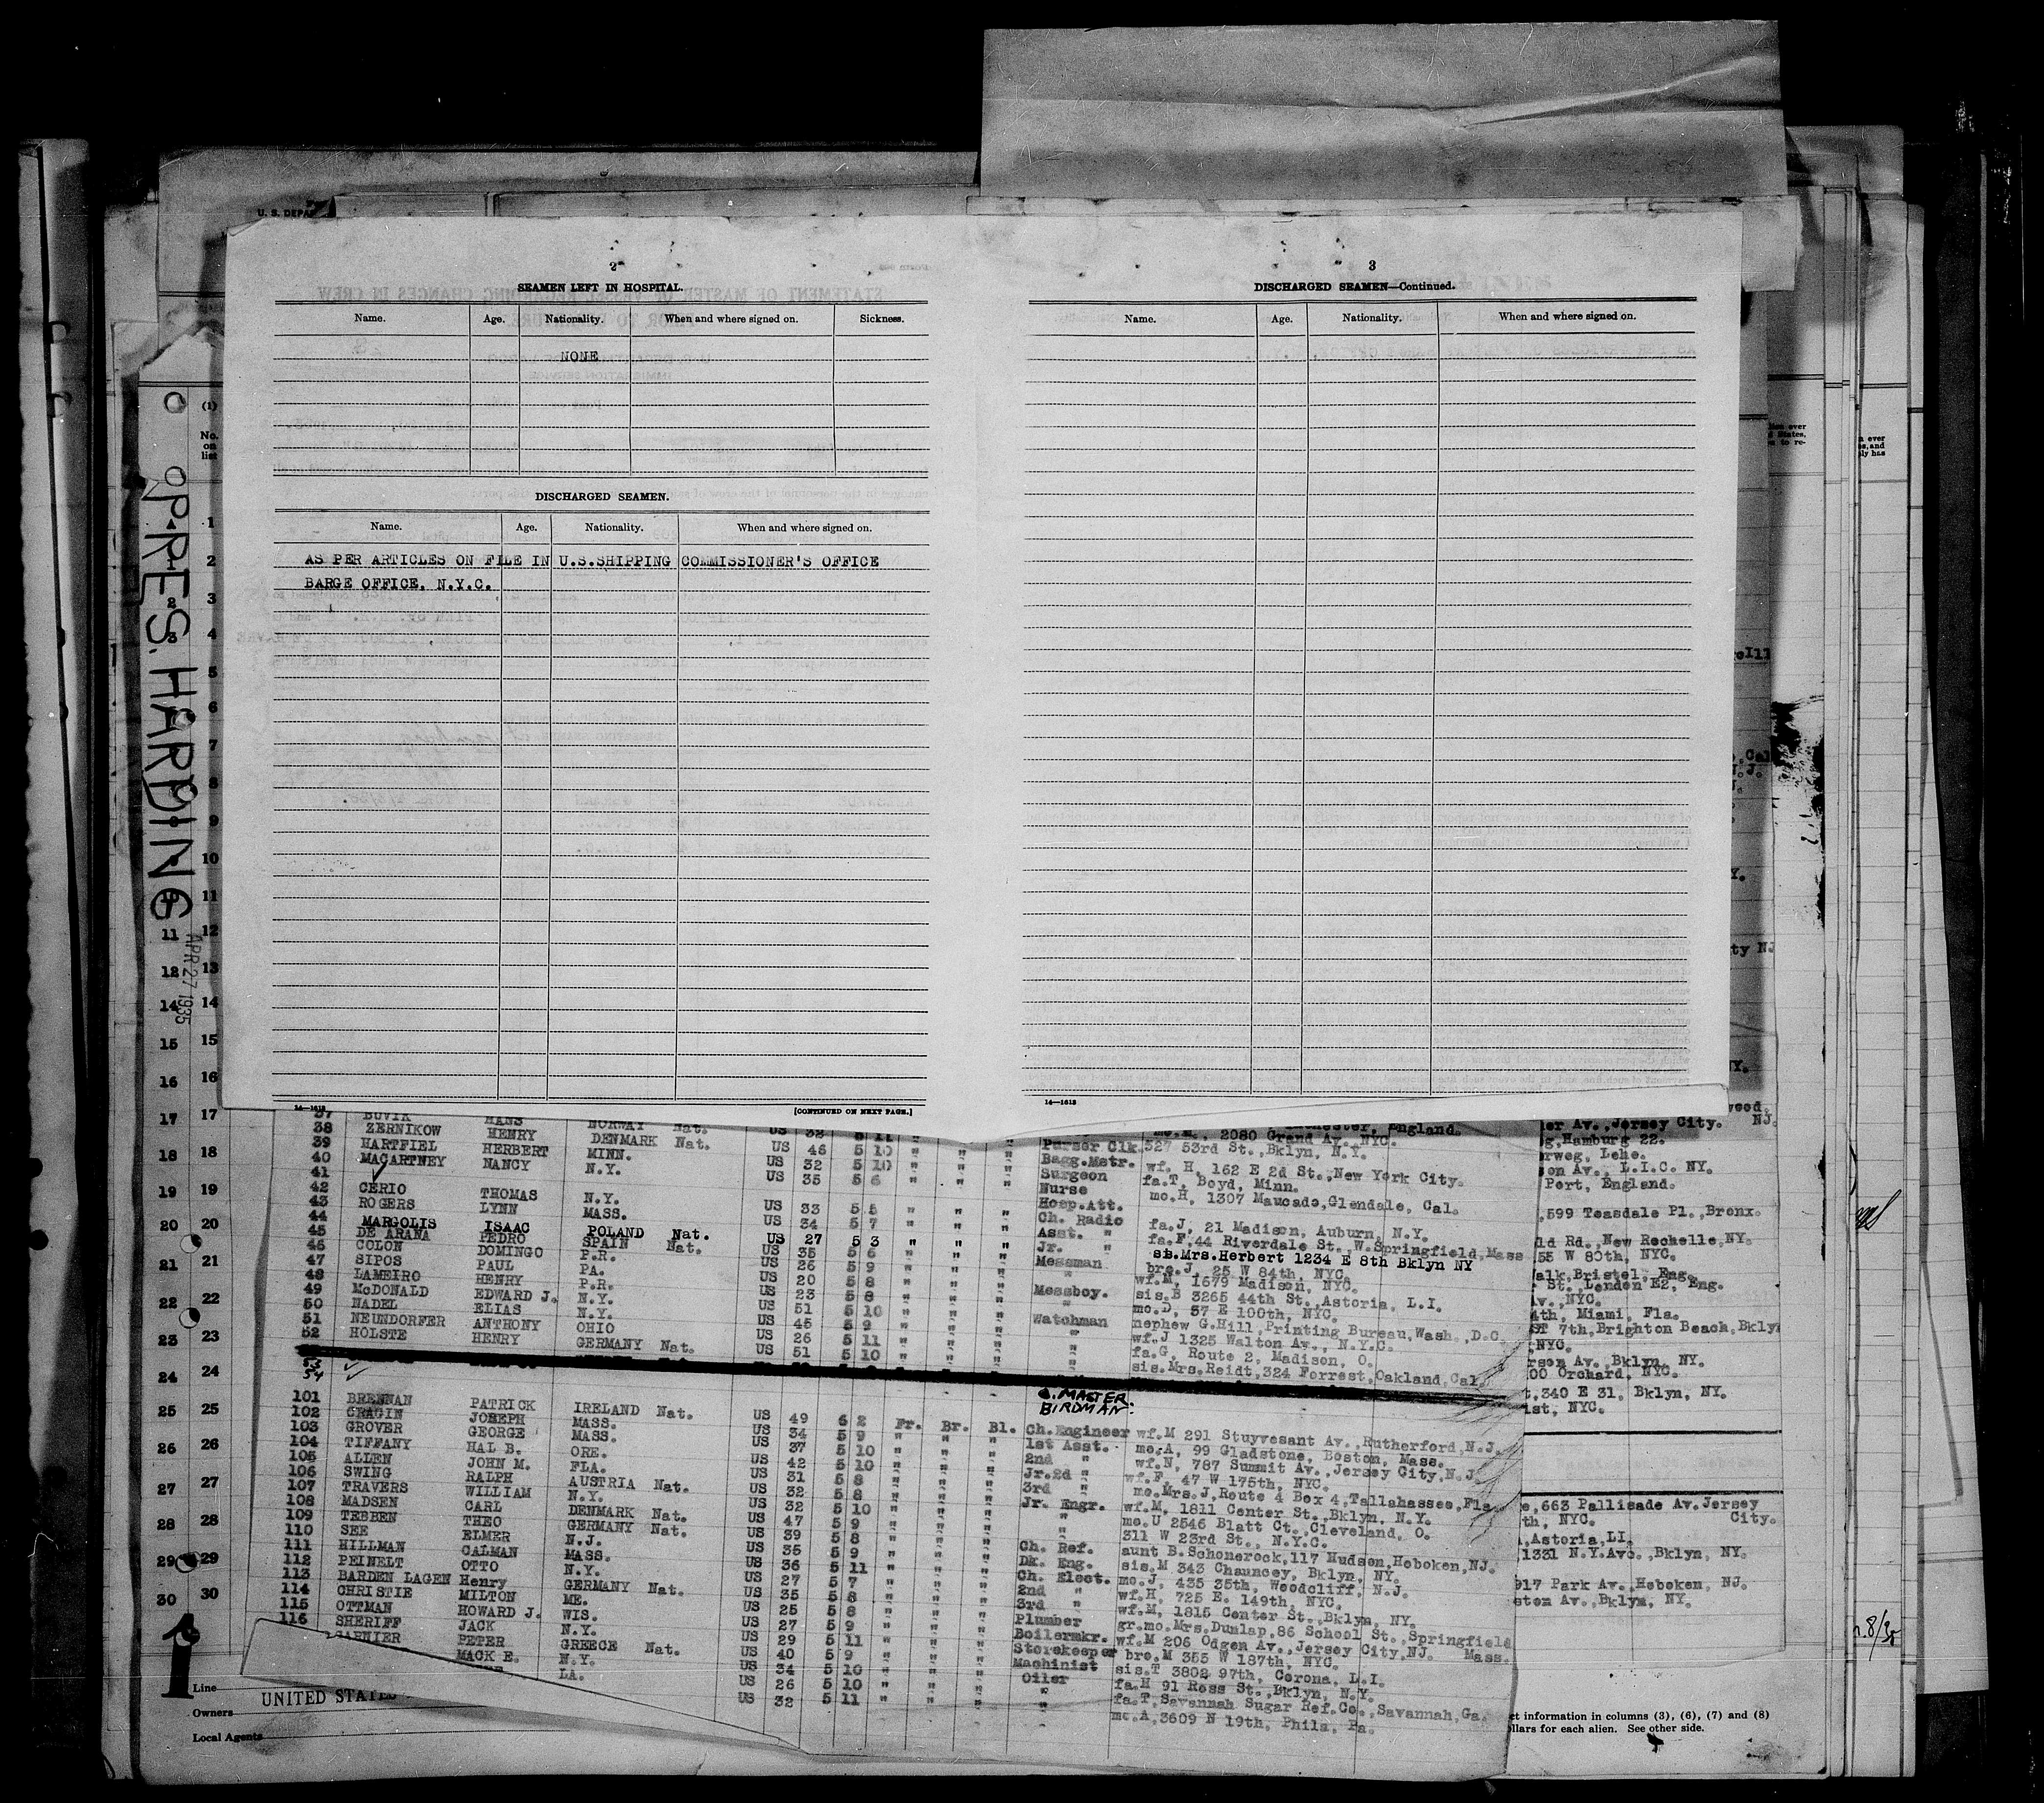 U. S. DEPA
2
SEAMEN LEFT IN HOSPITAL.
Name. Age. Nationality. When and where signed on. Sickness.
NONE
DISCHARGED SEAMEN.
Name. Age. Nationality. When and where signed on.
AS PER ARTICLES ON FILE IN U.S.SHIPPING COMMISSIONER'S OFFICE
BARGE OFFICE, N.Y.C.
14—1613 [CONTINUED ON NEXT PAGE.]
3
DISCHARGED SEAMEN—Continued.
Name. Age. Nationality. When and where signed on.
14—1613
PRES. HARDING
APR 27 1935
(1)
No.
on
list
37 BUVIK HANS NORWAY Nat.
38 ZERNIKOW HENRY DENMARK Nat. US 32 5 11 2080 Grand Av. NYC.
39 HARTFIEL HERBERT MINN. US 46 5 10 " " " Purser Clk. 327 53rd St., Bklyn, N.Y.
40 MACARTNEY NANCY N.Y. US 32 5 10 " " " Bagg.Mstr. wf. H, 162 E 2d St., New York City.
41 US 35 5 6 " " " Surgeon fa.T, Boyd, Minn.
Nurse mo.H, 1307 Maucado, Glendale, Cal.
42 CERIO THOMAS N.Y. US 33 5 5 " " " Hosp.Att.
43 ROGERS LYNN MASS. US 34 5 7 " " " Ch. Radio fa.J, 21 Madison, Auburn, N.Y.
44 MARGOLIS ISAAC POLAND Nat. US 27 5 3 " " " Asst. " fa.F, 44 Riverdale St., W.Springfield, Mass
45 DE ARANA PEDRO SPAIN Nat. US 35 5 6 " " " Jr. " sis.Mrs.Herbert 1234 E 8th Bklyn NY
46 COLON DOMINGO P.R. US 26 5 9 " " " Messman bro.J, 25 W 84th, NYC.
47 SIPOS PAUL PA. US 20 5 8 " " " " wf.M, 1679 Madison, NYC.
48 LAMEIRO HENRY P.R. US 23 5 8 " " " Messboy. sis.B 3265 44th St., Astoria, L.I.
49 McDONALD EDWARD J. N.Y. US 51 5 10 " " " " mo.D, 57 E 100th, NYC.
50 NADEL ELIAS N.Y. US 45 5 9 " " " Watchman nephew G.Hill, Printing Bureau, Wash., D.C.
51 NEUNDORFER ANTHONY OHIO US 26 5 11 " " " " wf.J 1325 Walton Av., N.Y.C.
52 HOLSTE HENRY GERMANY Nat. US 51 5 10 " " " " fa.G, Route 2, Madison, O.
sis.Mrs.Reidt, 324 Forrest, Oakland, Cal.
53
54
MASTER.
BIRDMAN.
101 BRENNAN PATRICK IRELAND Nat. US 49 6 2 Fr. Br. Bl. Ch.Engineer wf.M 291 Stuyvesant Av., Rutherford, N.J.
102 CRAGIN JOSEPH MASS. US 34 5 9 " " " 1st Asst. mo.A, 99 Gladstone, Boston, Mass.
103 GROVER GEORGE MASS. US 37 5 10 " " " 2nd " wf.N, 787 Summit Av., Jersey City, N.J.
104 TIFFANY HAL B. ORE. US 42 5 10 " " " Jr.2d " wf.F, 47 W 175th, NYC.
105 ALLEN JOHN M. FLA. US 31 5 8 " " " 3rd " mo.Mrs.J, Route 4 Box 4, Tallahassee, Fla
106 SWING RALPH AUSTRIA Nat. US 32 5 8 " " " Jr. Engr. wf.M, 1811 Center St., Bklyn, N.Y.
107 TRAVERS WILLIAM N.Y. US 32 5 10 " " " " mo.U 2546 Blatt Ct., Cleveland, O.
108 MADSEN CARL DENMARK Nat. US 47 5 9 " " " " 311 W 23rd St., N.Y.C.
109 TEBBEN THEO GERMANY Nat. US 39 5 8 " " " Ch. Ref. aunt B.Schonerock, 117 Hudson, Hoboken, NJ.
110 SEE ELMER N.J. US 35 5 9 " " " Dk. Eng. sis.M 343 Chauncey, Bklyn, NY.
111 HILLMAN CALMAN MASS. US 36 5 11 " " " Ch. Elect. mo.J, 435 35th, Woodcliff, N.J.
112 PEINELT OTTO N.Y. US 27 5 7 " " " 2nd " wf.H, 725 E. 149th, NYC.
113 BARDEN LAGEN Henry GERMANY Nat. US 35 5 8 " " " 3rd " wf.M, 1815 Center St., Bklyn, NY.
114 CHRISTIE MILTON ME. US 25 5 8 " " " Plumber gr.mo.Mrs.Dunlap, 86 School St., Springfield Mass.
115 OTTMAN HOWARD J. WIS. US 27 5 9 " " " Boilermkr. wf.M 206 Odgen Av., Jersey City, NJ.
116 SHERIFF JACK N.Y. US 29 5 11 " " " Storekeeper bro.M 355 W 187th, NYC.
GARNIER PETER GREECE Nat. US 40 5 9 " " " Machinist sis.T 3802 97th, Corona, L.I.
MACK E. N.Y. US 34 5 10 " " " Oiler fa.H 91 Ross St., Bklyn, N.Y.
LA. US 26 5 10 " " " " fa.T, Savannah Sugar Ref.Co., Savannah, Ga.
US 32 5 11 " " " " mo.A, 3609 N 19th, Phila, Pa.
1
Line
UNITED STATES
Owners
Local Agents
er Av., Jersey City. NJ.
g, Hamburg 22.
rweg, Lehe.
on Av., L.I.C. NY.
Port, England.
,599 Teasdale Pl., Bronx.
ld Rd., New Rochelle, NY.
55 W 80th, NYC.
alk, Bristol, Eng.
St., London E2, Eng.
Av., NYC.
4th, Miami, Fla.
ST 7th, Brighton Beach, Bkly
,NYC.
rson Av., Bklyn, NY.
00 Orchard, NYC.
t, 340 E 31, Bklyn, NY.
1st, NYC.
e, 663 Pallisade Av. Jersey City.
th, NYC.
, Astoria, LI.
1331 N.Y.Ave., Bklyn, NY.
917 Park Av., Hoboken, NJ.
ston Av., Bklyn, NY.
ct information in columns (3), (6), (7) and (8)
llars for each alien. See other side.